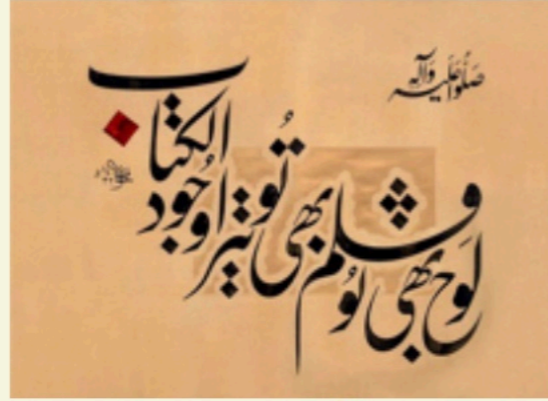 صَلُّوا عَلَیہِ وَآلِہٖ
لَوح بھی تُو قلم بھی تُو تیرا وجُود الکتاب